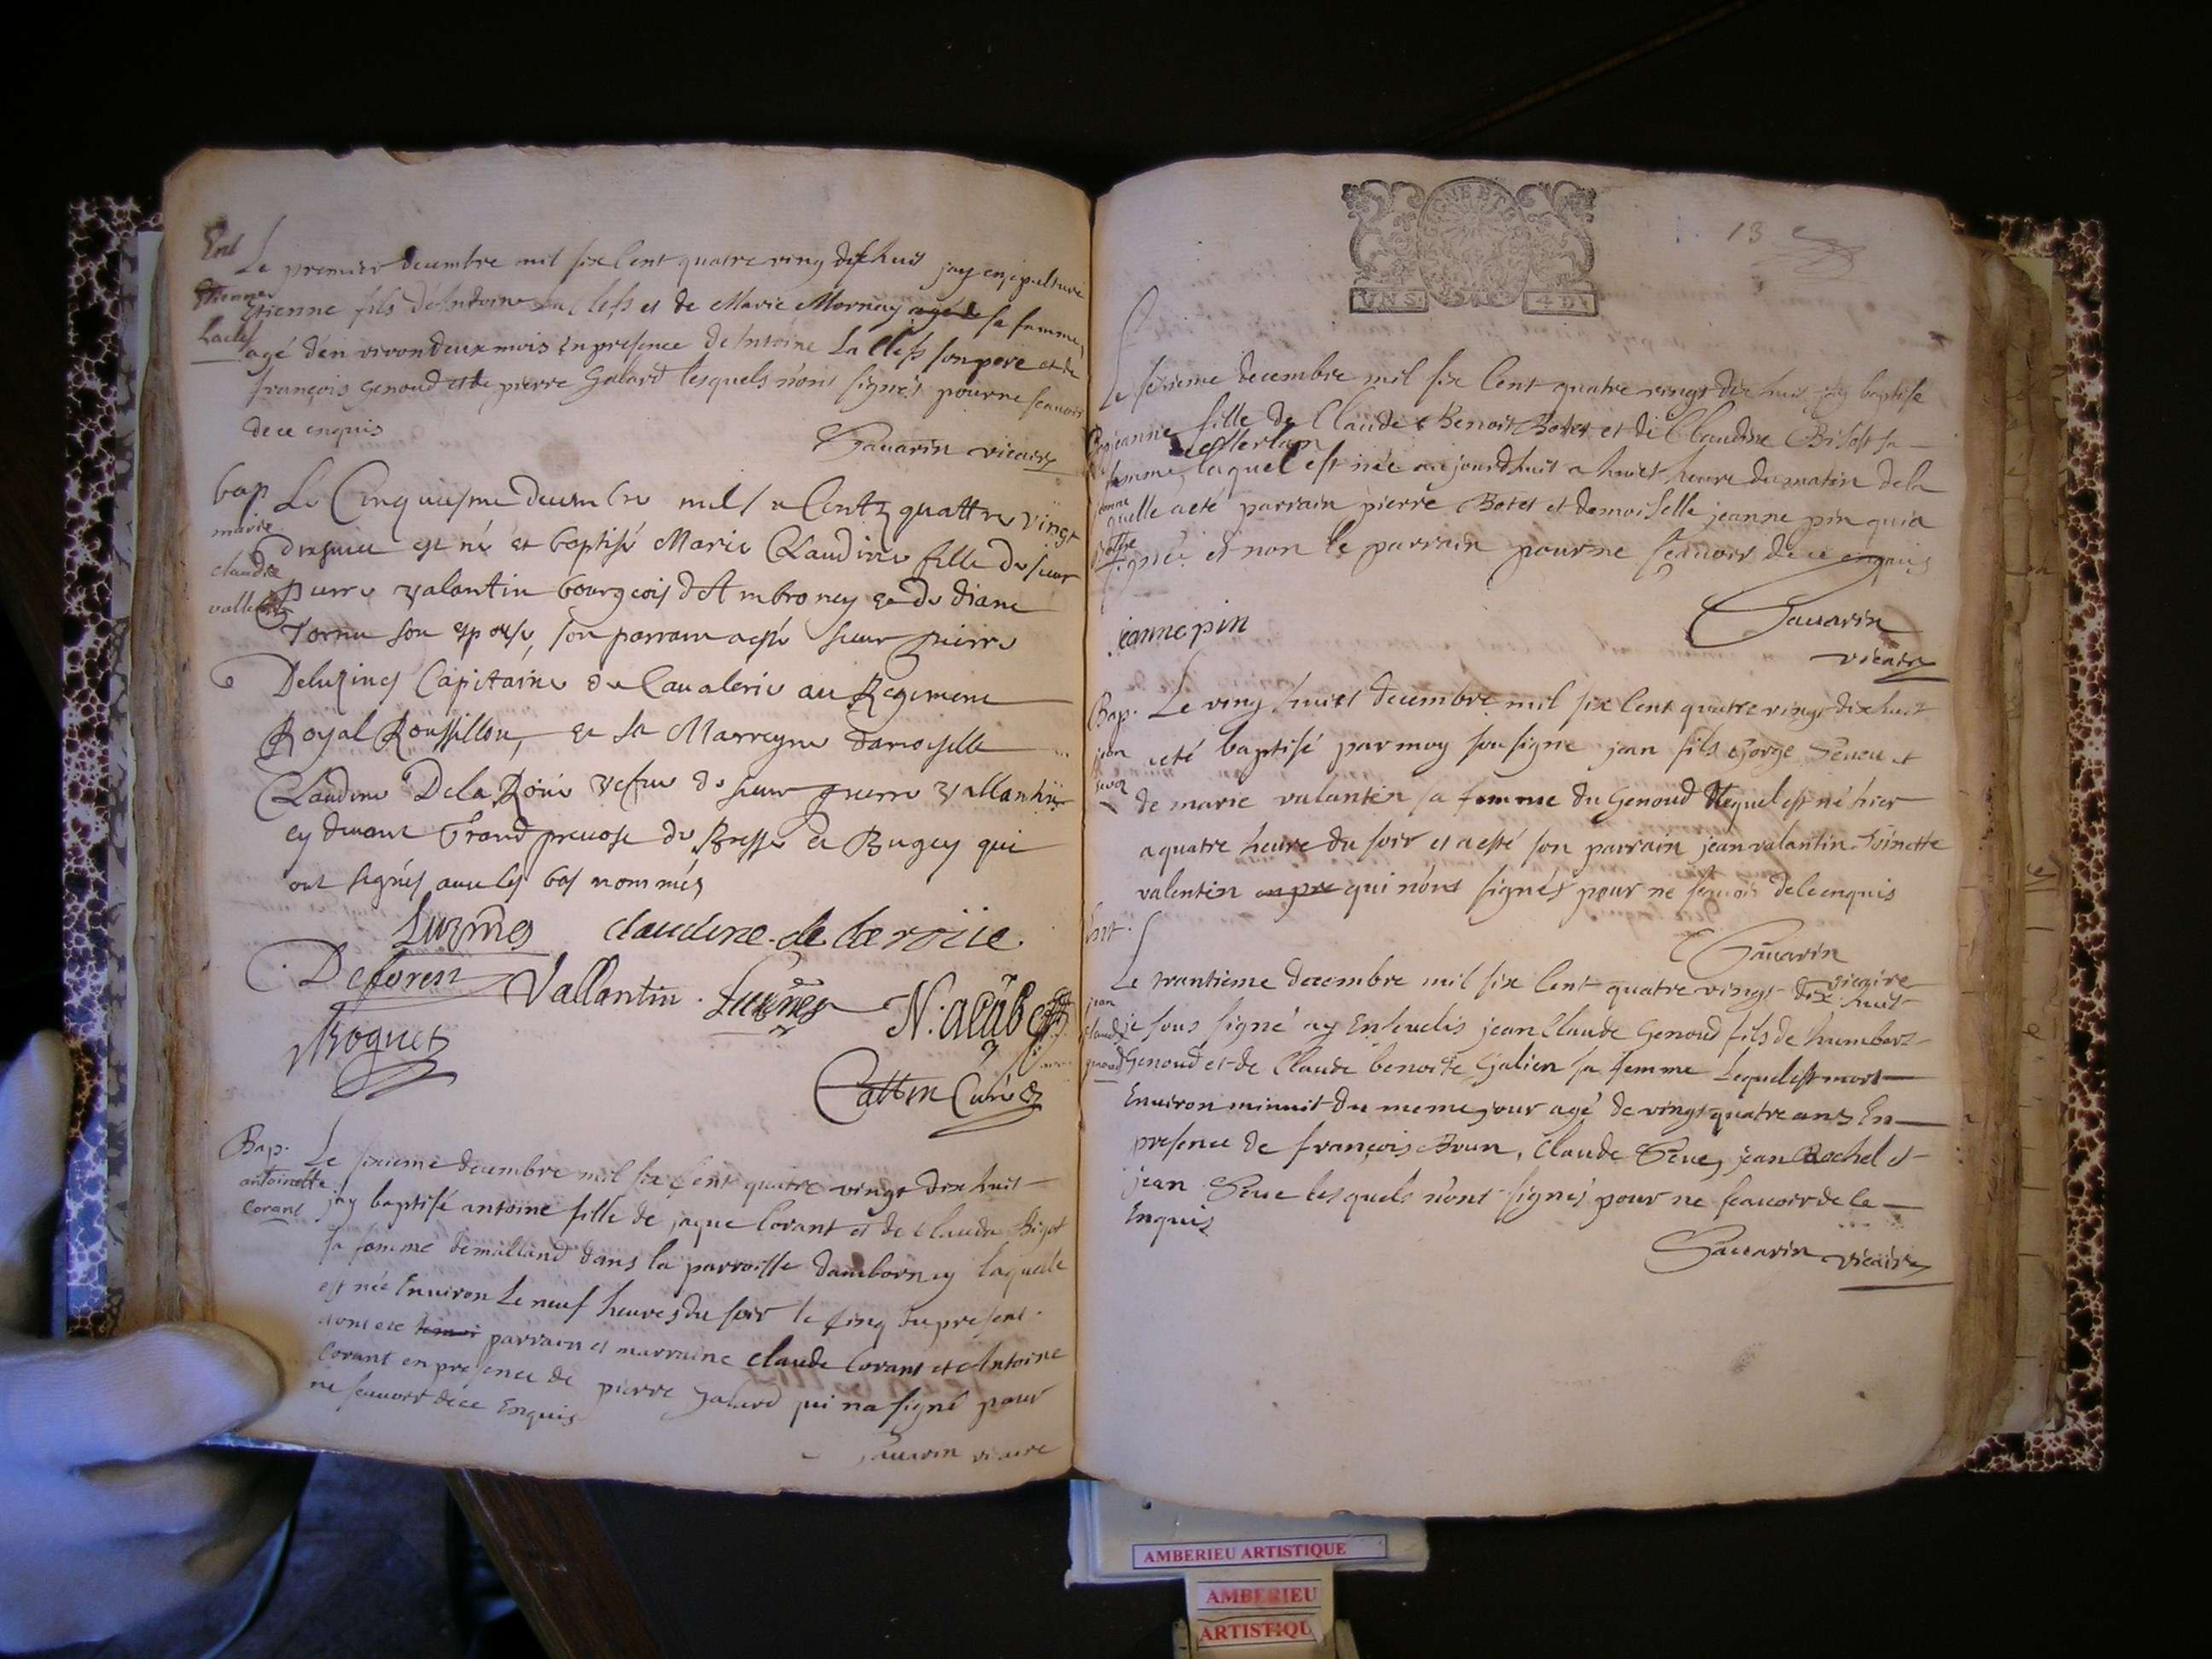 Ent
Le premier decembre mil six Cent quatre ving dixhuit jay ensepulturé
Etienne
Etienne fils dAntoine La Clefs et de Marie Mornay agé d sa femme,
Laclef
agé d'environ deux mois En presence de Antoine La Clefs son pere et de
françois genoud et de pierre Galard lesquels n'ont signés pour ne scauoir
de ce enquis
Sauarin vicaire
bap
Le Cinquiesme decembre mil six Centz quattre vingt
marie
dixhuict est né et baptisé Marie Claudine fille de sieur
claudine
pierre valantin bourgeois d'Ambroney et de diane
vallentin
son espouse, son parrain a esté sieur pierre
Deluzines Capitaine de Caualerie au Regiment
Royal Roussillon, et la Marreyne damoyselle
Claudine De la Roüe vefue de sieur pierre Vallantin
cy deuant Grand preuost de Bresse et Bugey qui
ont signés auec les bas nommés
Luzines claudine de la roüe
Deforest Vallantin Luzines
Cattin Curé
Bap.
Le sixieme decembre mil six Cent quatre vingt dix huit
antoinette
jay baptisé antoine fille de jaque Corant et de Clauda Bigot
Corant
sa femme demilland dans la parroisse damborney laquelle
est née Enuiron Le neuf heures du soir le cinq du present
dont été parrain et marraine claude Corant et Antoine
Corant en presence de pierre Galard qui na signé pour
ne scauoir de ce Enquis
Sauarin vicaire
13
UN S. 4 D.
Le seizieme decembre mil six Cent quatre vingt dix huit, jay baptisé
jeanne fille de Claude Benoit Botet et de Claudine sa
femme, laquel est née aujourdhuit a huict heure du matin de la
quelle a eté parrain pierre Botet et demoiselle jeanne pin qui a
signée et non le parrain pour ne scauoir de ce enquis
jeanne pin
Sauarin
vicaire
Bap.
Le ving huict decembre mil six Cent quatre vingt dix huit
jean
a eté baptisé par moy sousigné jean fils George Seueu et
de marie valantin sa femme du Genoud lequel est né hier
a quatre heure du soir et a esté son parrain jean valantin Toinette
valentin qui n'ont signés pour ne scauoir de ce enquis
Sauarin
vicaire
Ent.
Le trantieme decembre mil six Cent quatre vingt dix huit
jean
je sous signé ay Enseuelis jean Claude Genoud fils de humbert
claude
Genoud et de Claude benoite Galien sa femme Lequel est mort
genoud
Enuiron minuit du meme jour agé de vingt quatre ans En
presence de françois Brun, Claude Seue, jean Rochel et
jean Seue lesquels n'ont signés pour ne scauoir de ce
Enquis
Sauarin vicaire
AMBERIEU ARTISTIQUE
AMBERIEU
ARTISTIQU